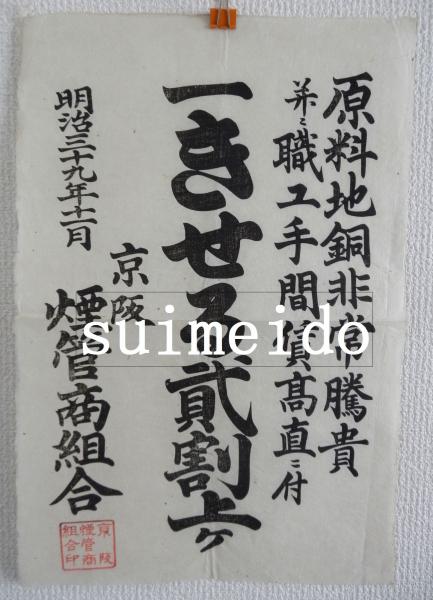 原料地銅非常騰貴
並ニ職工手間賃高直ニ付
一きせる貳割上ケ
明治三十九年十一月
京阪
煙管商組合
京阪
煙管商
組合印
suimeido